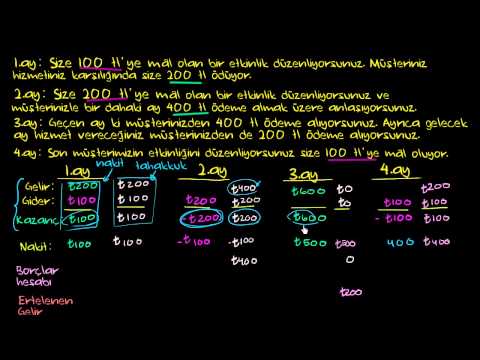 1.ay: Size 100 tl'ye mâl olan bir etkinlik düzenliyorsunuz. Müşteriniz
hizmetiniz karşılığında size 200 tl ödüyor.
2.ay: Size 200 tl'ye mâl olan bir etkinlik düzenliyorsunuz ve
müşterinizle bir dahaki ay 400 tl ödeme almak üzere anlaşıyorsunuz.
3.ay: Geçen ay ki müşterinizden 400 tl ödeme alıyorsunuz. Ayrıca gelecek
ay hizmet vereceğiniz müşterinizden de 200 tl ödeme alıyorsunuz.
4.ay: Son müşterimizin etkinliğini düzenliyorsunuz size 100 tl'ye mâl oluyor.
1.ay nakit tahakkuk 2.ay 3.ay 4.ay
Gelir: ₺200 ₺200 ₺400 ₺600 ₺0 ₺200
Gider: ₺100 ₺100 ₺200 ₺200 ₺0 ₺100 ₺100
Kazanç: ₺100 ₺100 -₺200 ₺200 ₺600 -₺100 ₺100
Nakit: ₺100 ₺100 -₺100 -₺100 ₺500 ₺500 400 ₺400
Borçlar ₺400 0
hesabı
₺200
Ertelenen
Gelir